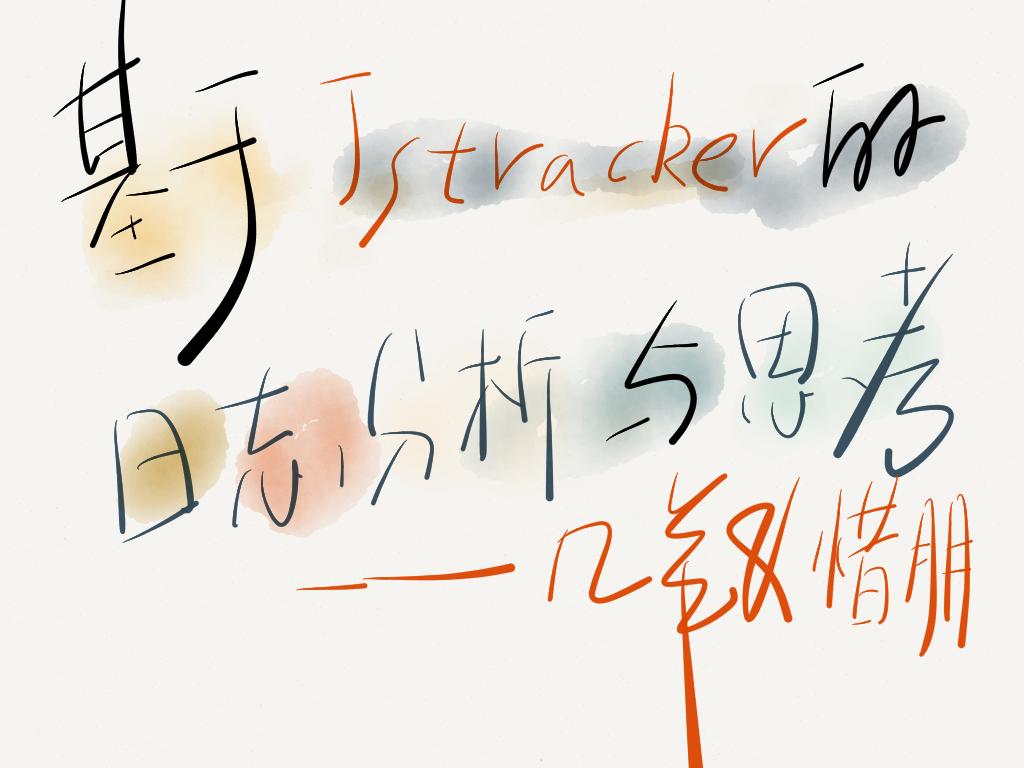 基于Jstracker的
日志分析与思考
——几 惜朋